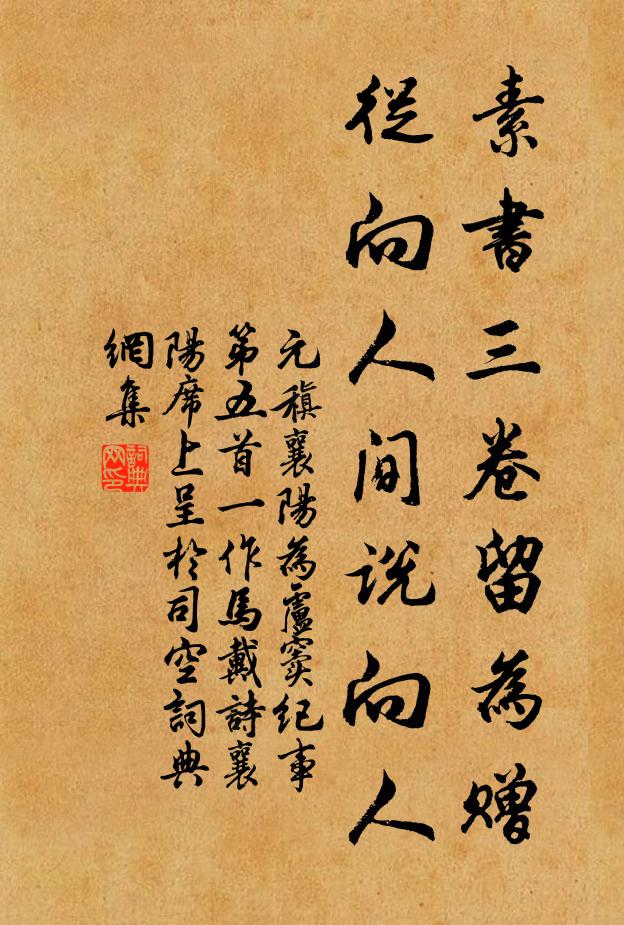 素書三卷留為贈
從向人間說向人
元稹襄陽為盧竇纪事
第五首一作馬戴詩襄
陽席上呈於司空詞典
網集
詞典网印